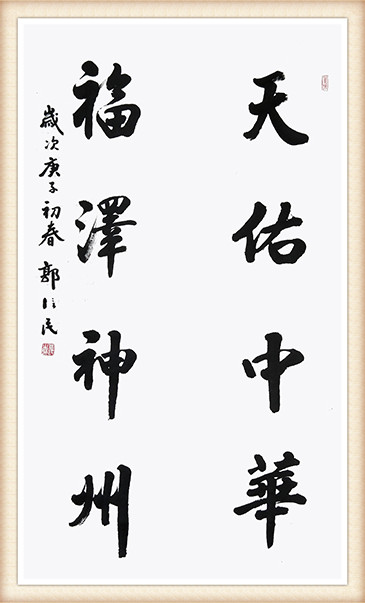 天佑中華
福澤神州
歲次庚子初春 郭信民